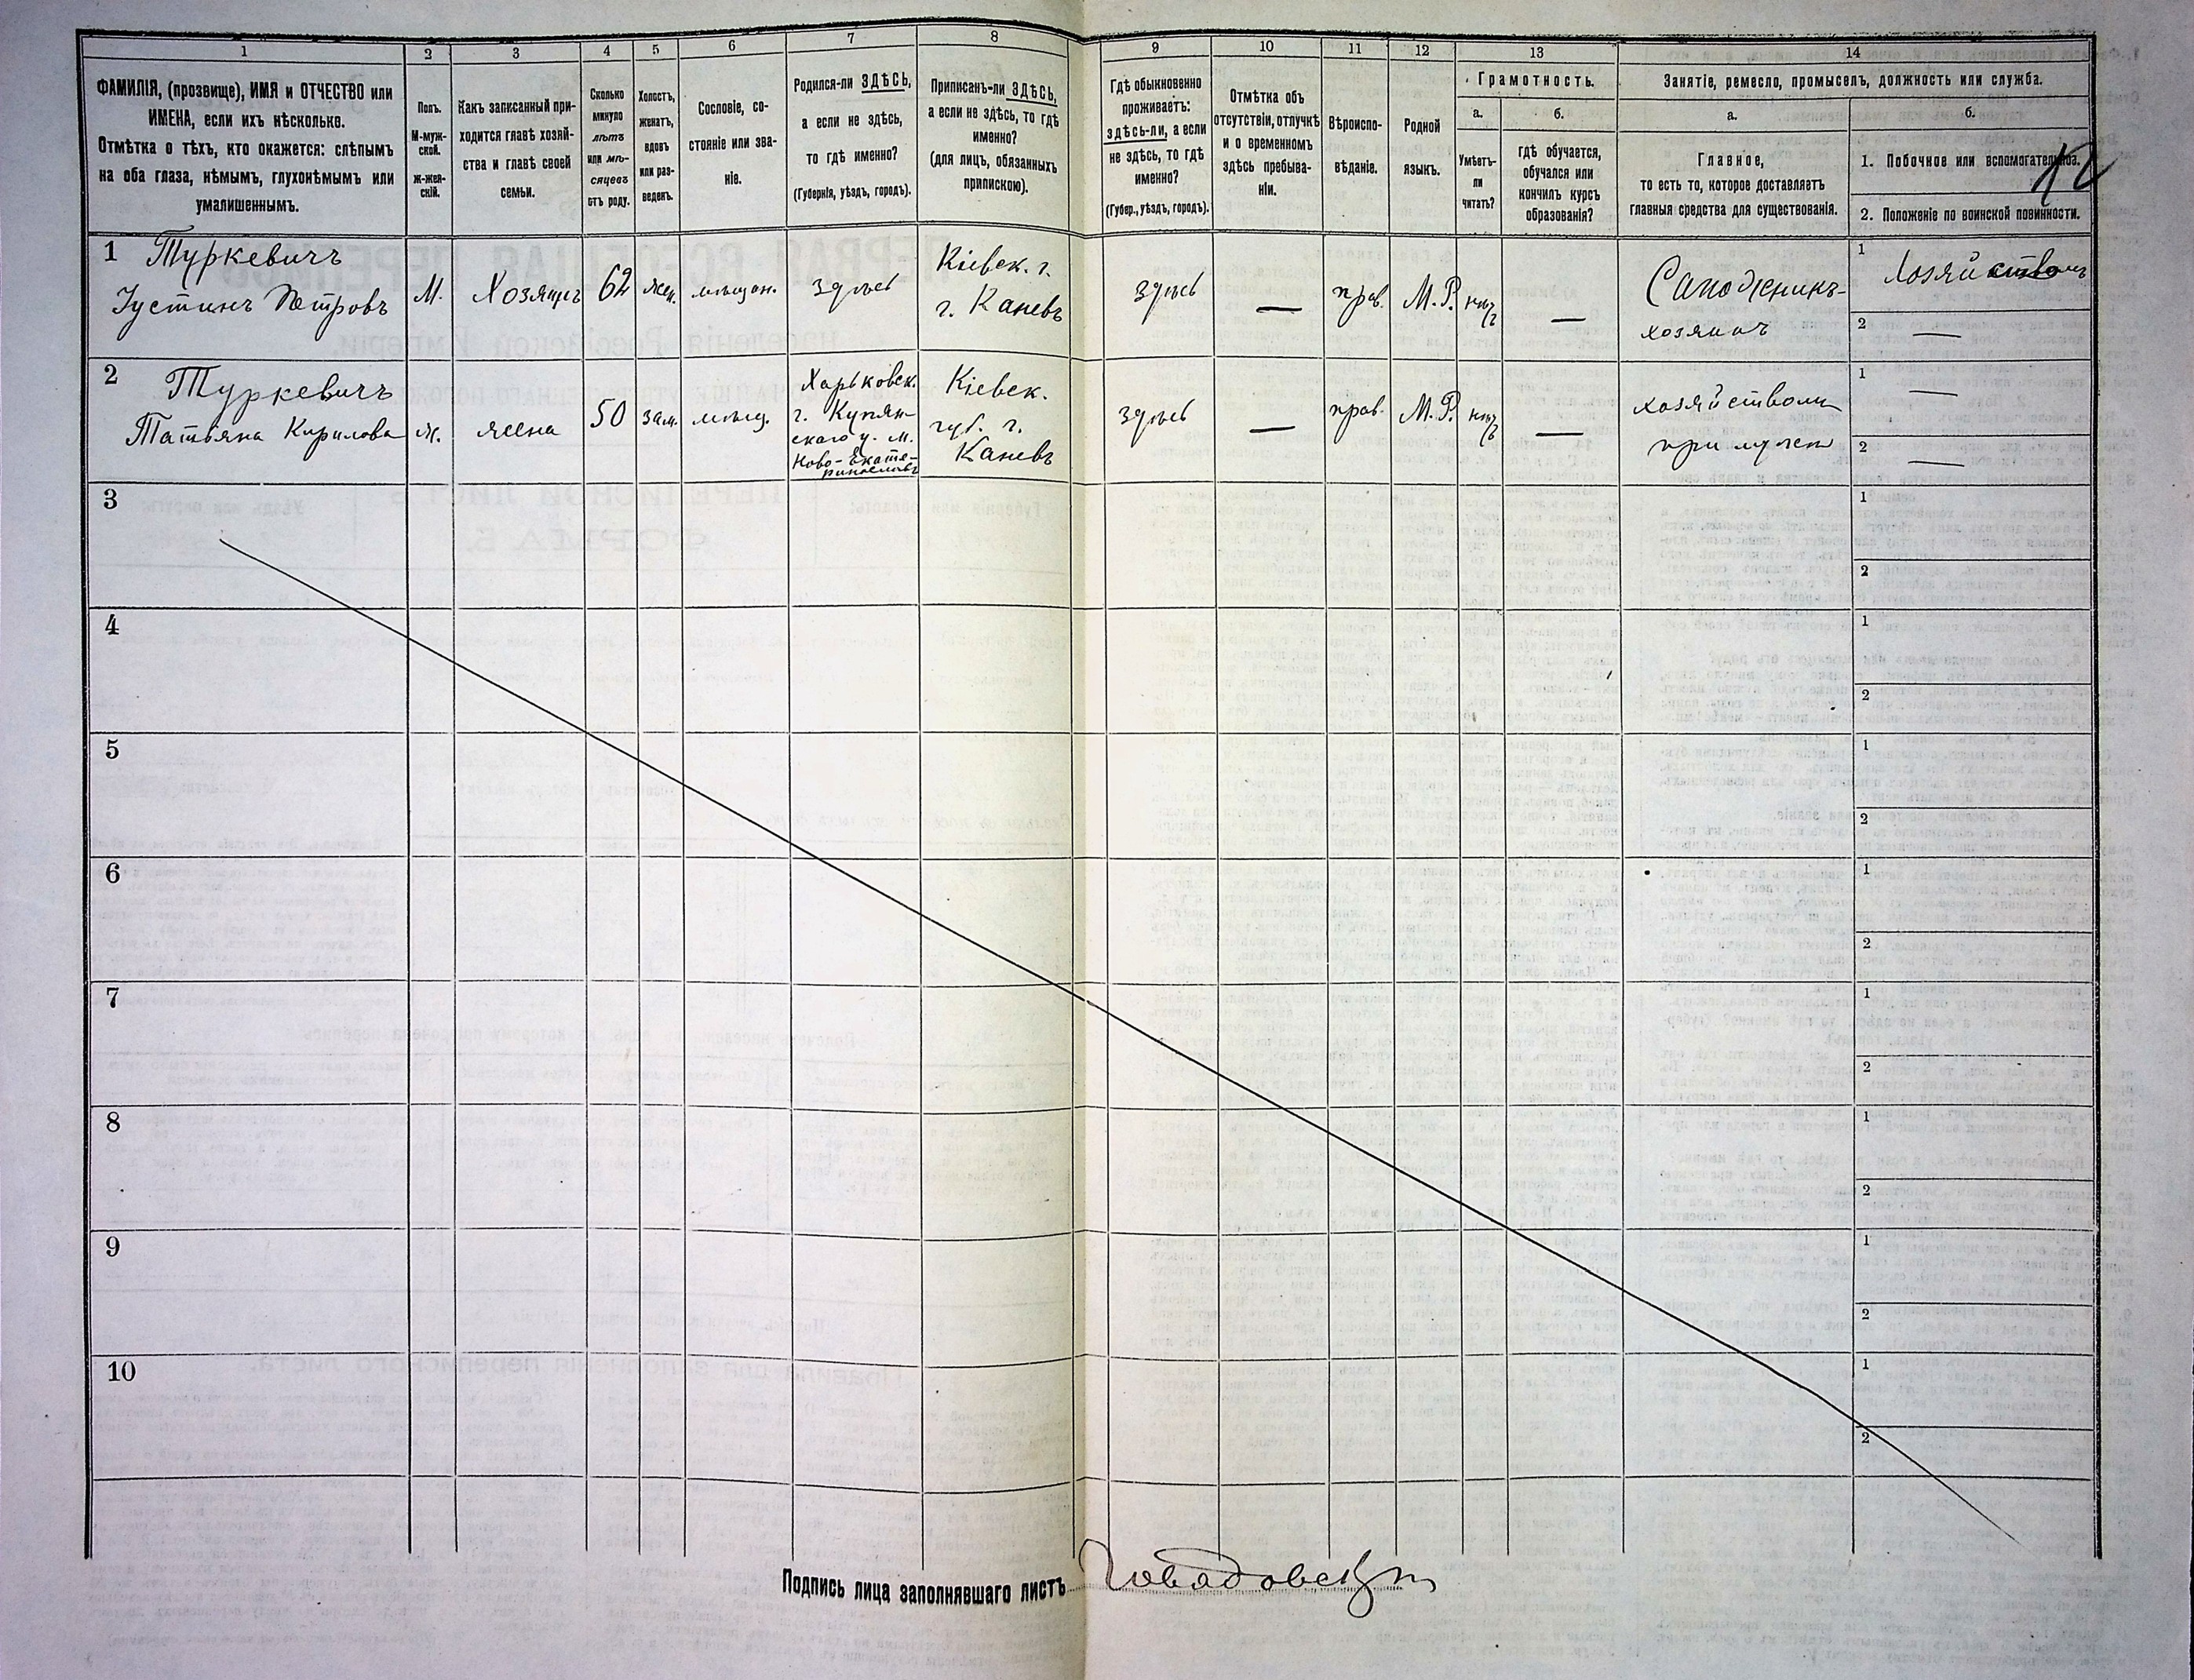 1 2 3 4 5 6 7 8 9 10 11 12 13 14
ФАМИЛІЯ, (прозвище), ИМЯ и ОТЧЕСТВО или
ИМЕНА, если ихъ нѣсколько.
Отмѣтка о тѣхъ, кто окажется: слѣпымъ
на оба глаза, нѣмымъ, глухонѣмымъ или
умалишеннымъ.
Полъ.
М-муж-
ской.
ж-жен-
скій.
Какъ записанный при-
ходится главѣ хозяй-
ства и главѣ своей
семьи.
Сколько
минуло
лѣтъ
или мѣ-
сяцевъ
отъ роду.
Холостъ,
женатъ,
вдовъ
или раз-
веденъ.
Сословіе, со-
стояніе или зва-
ніе.
Родился-ли ЗДѢСЬ,
а если не здѣсь,
то гдѣ именно?
(Губернія, уѣздъ, городъ).
Приписанъ-ли ЗДѢСЬ,
а если не здѣсь, то гдѣ
именно?
(для лицъ, обязанныхъ
припискою).
Гдѣ обыкновенно
проживаетъ:
здѣсь-ли, а если
не здѣсь, то гдѣ
именно?
(Губер., уѣздъ, городъ).
Отмѣтка объ
отсутствіи, отлучкѣ
и о временномъ
здѣсь пребыва-
ніи.
Вѣроиспо-
вѣданіе.
Родной
языкъ.
Грамотность.
а.
Умѣетъ-
ли
читать?
б.
гдѣ обучается,
обучался или
кончилъ курсъ
образованія?
Занятіе, ремесло, промыселъ, должность или служба.
а.
Главное,
то есть то, которое доставляетъ
главныя средства для существованія.
б.
1. Побочное или вспомогательное.
2. Положеніе по воинской повинности.
1 Туркевичъ
Іустинъ Петровъ
М.
Хозяинъ
62
жен.
мѣщан.
здѣсь
Кіевск. г.
г. Каневъ
здѣсь
—
прав.
М.Р.
—
Сапожникъ-
хозяинъ
1 Хозяйствомъ
2 —
2 Туркевичъ
Татьяна Кирилова
ж.
жена
50
зам.
мѣщ.
Харьковск.
г. Купян-
скаго у. м.
Ново-Екате-
ринославъ
Кіевск.
губ. г.
Каневъ
здѣсь
—
прав.
М.Р.
—
хозяйством
при мужѣ
1 —
2 —
3
1
2
4
1
2
5
1
2
6
1
2
7
1
2
8
1
2
9
1
2
10
1
2
Подпись лица заполнявшаго листъ